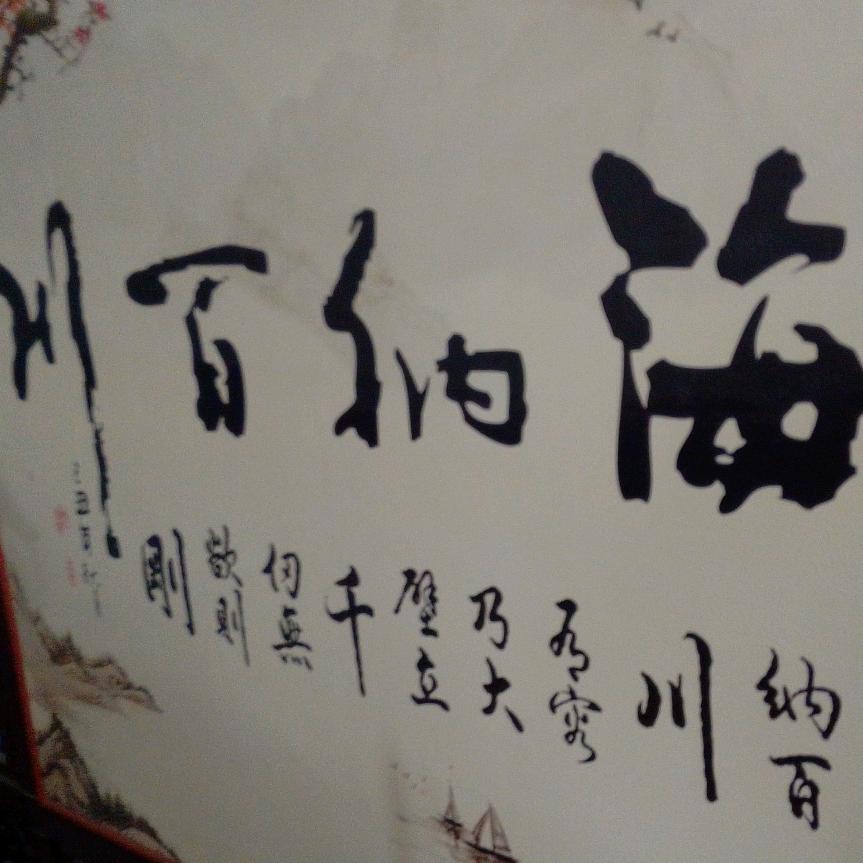 海纳百川
纳百
川
有容
乃大
壁立
千
仞無
欲則
剛